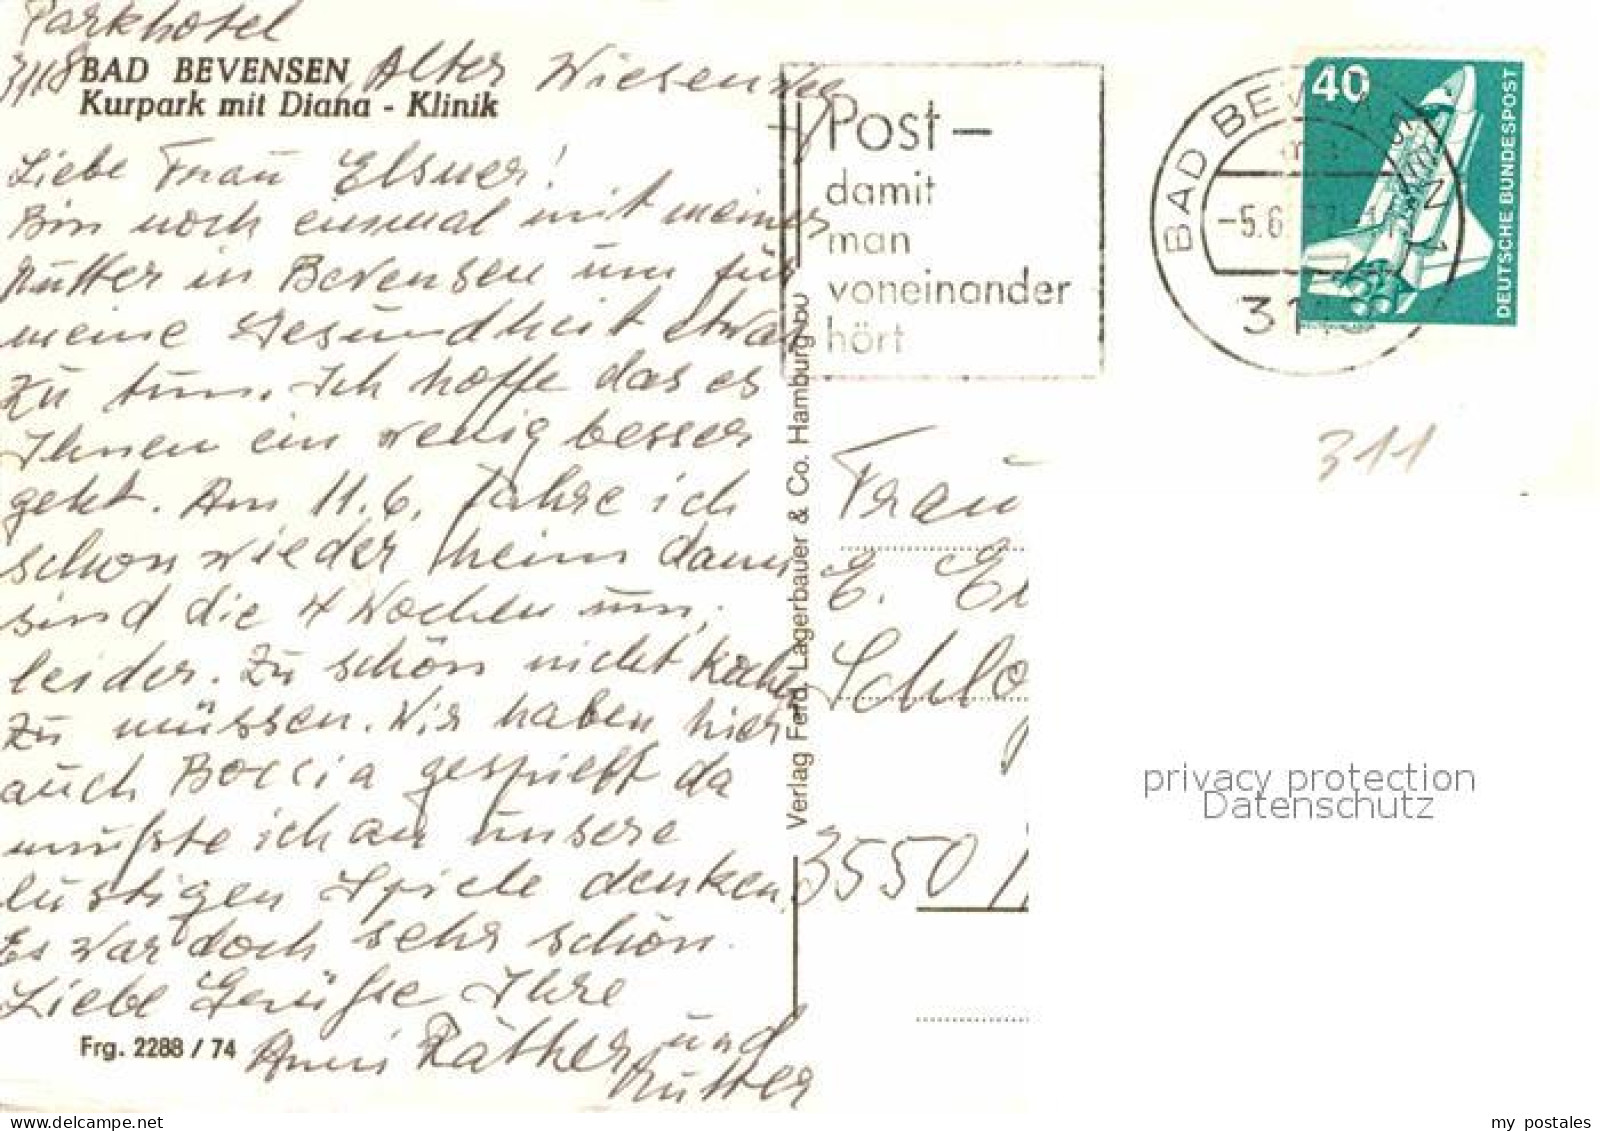 Parkhotel
3118 Alter Wiesenweg
BAD BEVENSEN
Kurpark mit Diana - Klinik
Liebe Frau Elsner!
Bin noch einmal mit meiner
Mutter in Bevensen um für
meine Gesundheit etwas
zu tun. Ich hoffe das es
Ihnen ein wenig besser
geht. Am 11.6. fahre ich
schon wieder heim dann
sind die 4 Wochen um,
leider. Zu schön nicht kochen
zu müssen. Wir haben hier
auch Boccia gespielt da
mußte ich an unsere
lustigen Spiele denken.
Es war doch sehr schön.
Liebe Grüße Ihre
Anni Räther und
Mutter
Frg. 2288 / 74
Verlag Ferd. Lagerbauer & Co. Hamburg 60
Post –
damit
man
voneinander
hört
BAD BEVEN
-5.6
311
40
DEUTSCHE BUNDESPOST
311
Frau
E. El
Schlo
3550
privacy protection
Datenschutz
my postales